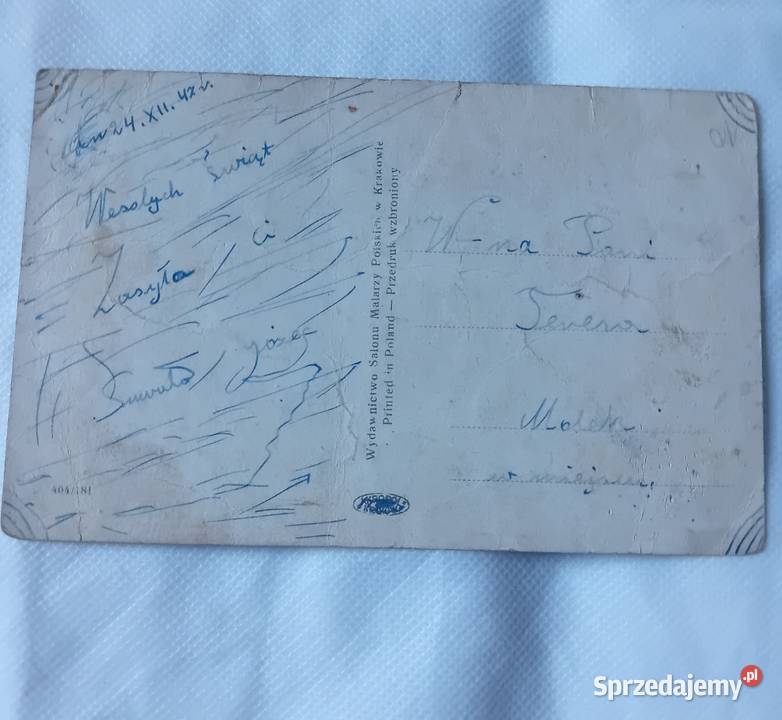 dn 24. XII. 42 r.
Wesołych Świąt
Zasyła Ci
Józef
404/181
Wydawnictwo Salonu Malarzy Polskich w Krakowie
Printed in Poland — Przedruk wzbroniony
W-na Pani
w miejscu.
Sprzedajemy.pl